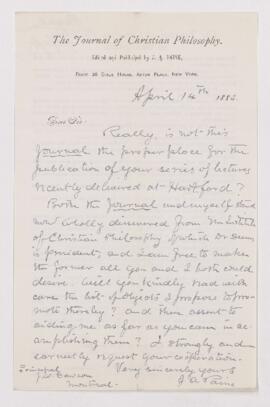 The Journal of Christian Philosophy.
Edited and Published by J. A. PAINE,
Room 30 Bible House, Astor Place, New York.
April 14th 1883.
Dear Sir.
Really, is not this
Journal the proper place for the
publication of your series of lectures
recently delivered at Hartford?
Both the Journal and myself stand
now wholly dissevered from the Institute
of Christian Philosophy of which Dr Deems
is president, and I am free to make
the former all you and I both could
desire. Will you kindly read with
care the list of objects I propose to pro-
mote thereby? and then assent to
aiding me as far as you can in ac-
complishing them? I strongly and
earnestly request your cooperation.
Very sincerely yours
J. A. Paine
Principal
Dawson
Montreal.